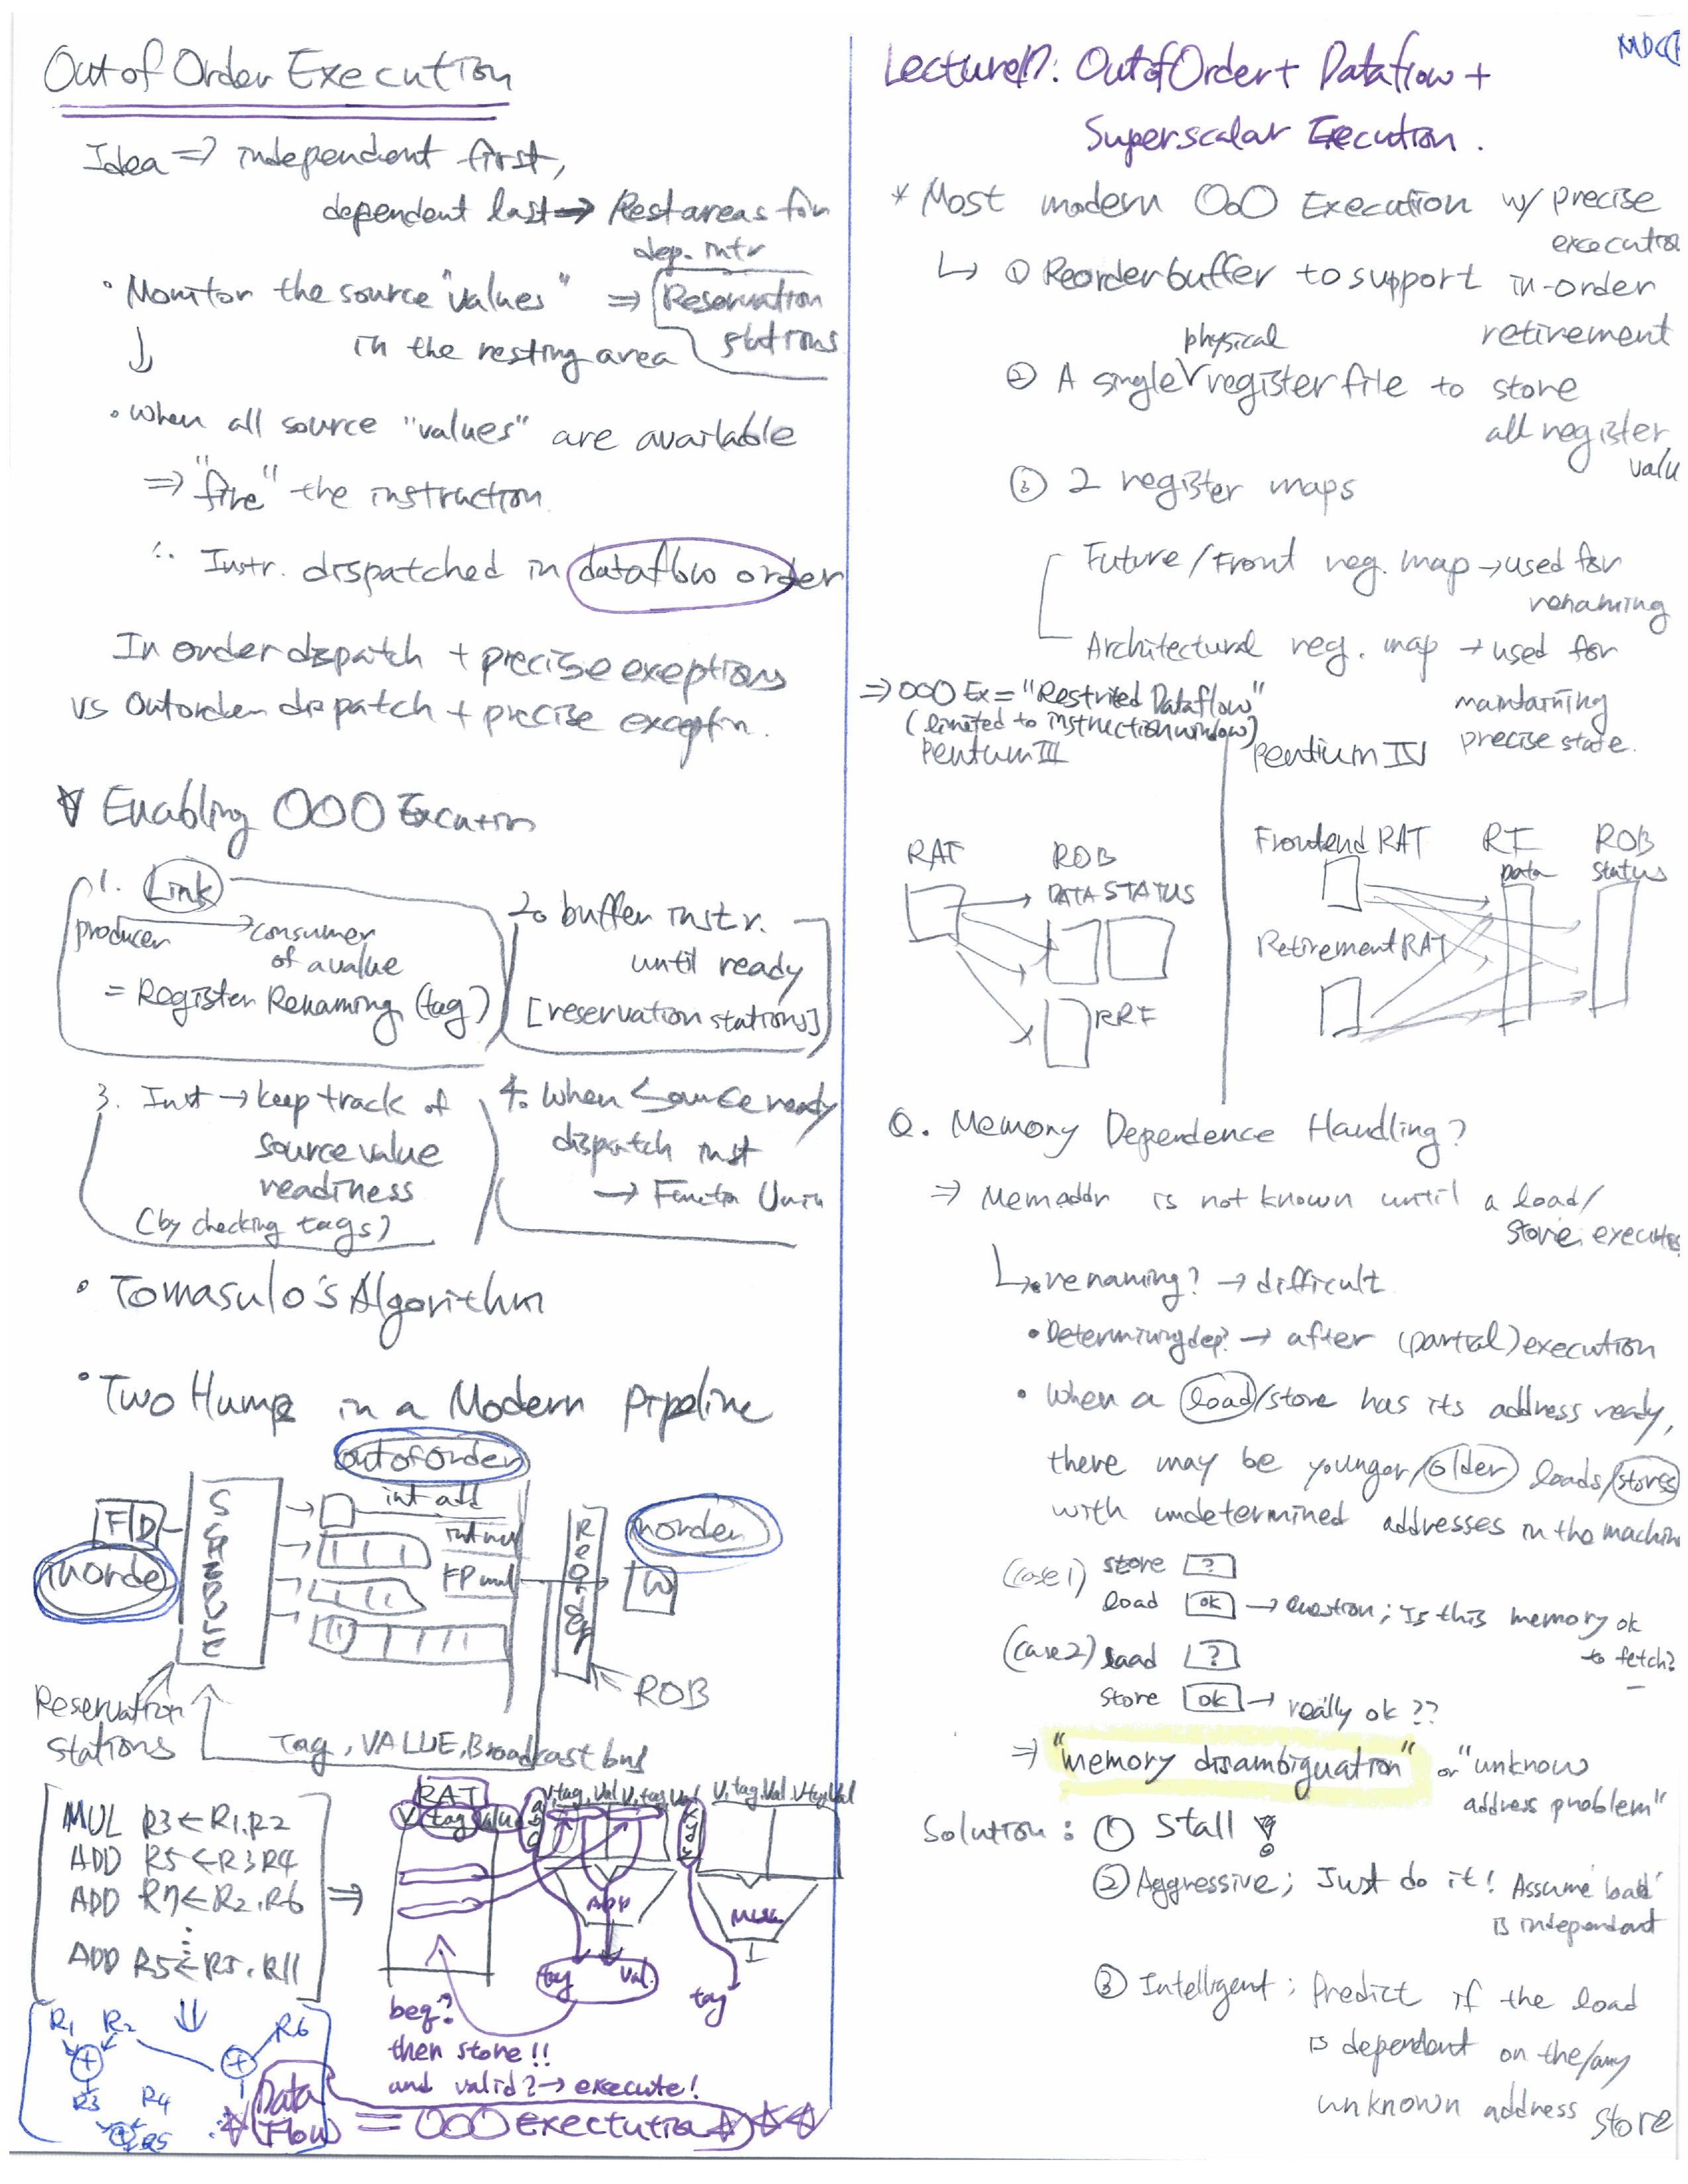 Out of Order Execution
Idea => independent first,
dependent last => Rest areas for
dep. intr
• Monitor the source "values" => Reservation
stations
in the resting area
• When all source "values" are available
=> "fire" the instruction.
∴ Instr. dispatched in dataflow order
In order dispatch + precise exeptions
vs Out order dispatch + precise exception.
Enabling OOO Execution
1. Link
producer → consumer
of a value
= Register Renaming (tag)
2. buffer instr.
until ready
[reservation stations]
3. Inst → keep track of
source value
readiness
(by checking tags)
4. When source ready
dispatch inst
→ Function Unit
• Tomasulo's Algorithm
• Two Humps in a Modern Pipeline
out of order
F D
in orde
SCHEDULE
int add
int mul
FP mul
Reorder
in order
W
ROB
Reservation
stations
Tag, VALUE, Broadcast bus
MUL R3 ← R1, R2
ADD R5 ← R3 R4
ADD R7 ← R2, R6
⋮
ADD R5 ← R5, R11
RAT
V tag Value
V, tag, Val V, tag, Val
V, tag, Val. V tag Val
a b c d
x y
ADD
MUL
tag val.
tag
beq?
then store!!
and valid? → execute!
R1 R2 R6
+ +
R3 R4
R5
Data
(Flow) = OOO exectution
MDCC
Lecture17: Out of Order + Dataflow +
Superscalar Execution.
* Most modern OoO Execution w/ precise
execution
↳ ① Reorder buffer to support in-order
retirement
② A single physical register file to store
all register
valu
③ 2 register maps
Future/Front reg. map → used for
renaming
Architectural reg. map → used for
maintaining
precise state.
=> OOO Ex = "Restrited Dataflow"
(limited to instruction window)
Pentum III
Pentium IV
RAT ROB
DATA STATUS
RRF
Frontend RAT RF ROB
Data Status
Retirement RAT
Q. Memory Dependence Handling?
=> Mem addr is not known until a load/
store executes
↳ • renaming? → difficult
• Determining dep? → after (partial) execution
• When a load/store has its address ready,
there may be younger/older loads/stores
with undetermined addresses in the machin
(case1) store ?
load ok → question; Is this memory ok
to fetch?
(case2) load ?
store ok → really ok ??
=> "memory disambiguation" or "unknow
address problem"
Solution: ① Stall
② Aggressive; Just do it! Assume 'load'
is independent
③ Intelligent; Predict if the load
is dependent on the/any
unknown address store